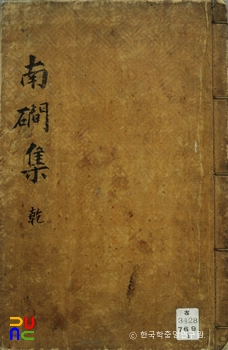 南磵集
乾
3428
769
ⓒ 한국학중앙연구원